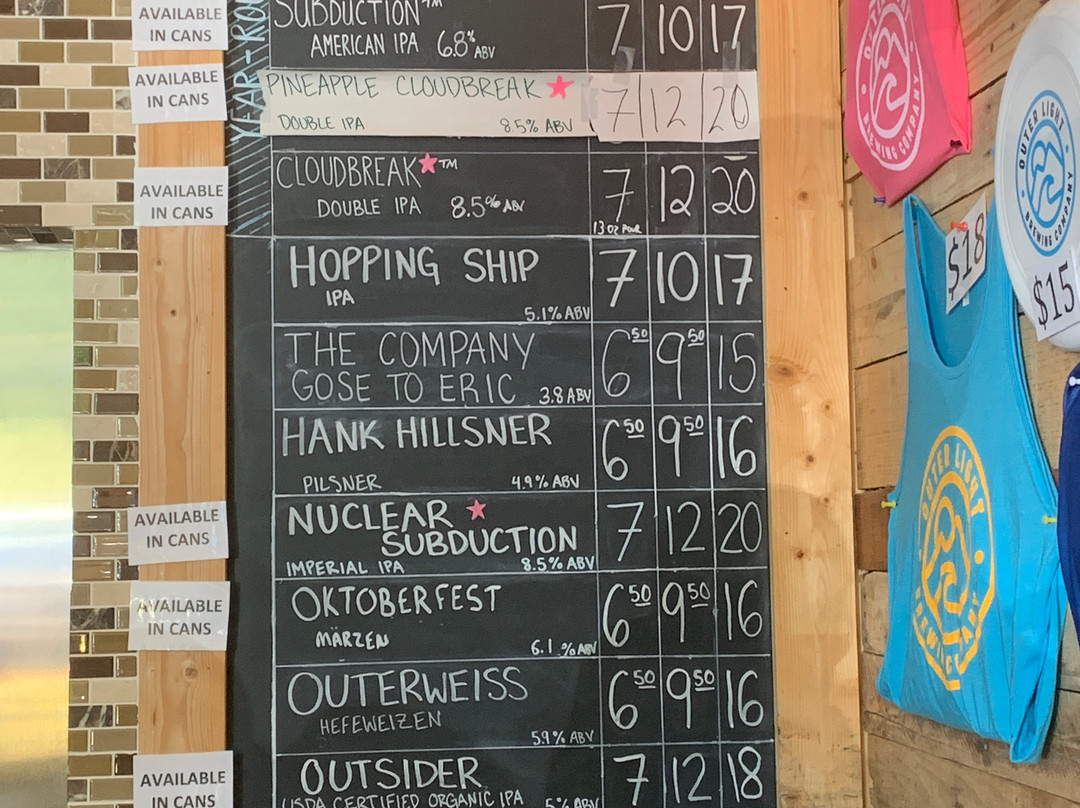 AVAILABLE
IN CANS
YEAR-RO
SUBDUCTION™ 7 10 17
AMERICAN IPA 6.8% ABV
AVAILABLE
IN CANS
PINEAPPLE CLOUDBREAK 7 12 20
DOUBLE IPA 8.5% ABV
AVAILABLE
IN CANS
CLOUDBREAK ™ 7 12 20
DOUBLE IPA 8.5% ABV
13 OZ POUR
HOPPING SHIP 7 10 17
IPA
5.1% ABV
THE COMPANY 6 50 9 50 15
GOSE TO ERIC 3.8 ABV
HANK HILLSNER 6 50 9 50 16
PILSNER 4.9% ABV
AVAILABLE
IN CANS
NUCLEAR 7 12 20
SUBDUCTION
IMPERIAL IPA 8.5% ABV
AVAILABLE
IN CANS
OKTOBERFEST 6 50 9 50 16
MÄRZEN 6.1 % ABV
OUTERWEISS 6 50 9 50 16
HEFEWEIZEN
5.9% ABV
AVAILABLE
IN CANS
OUTSIDER 7 12 18
USDA CERTIFIED ORGANIC IPA 5% ABV
BREWING COMPANY
OUTER LIGHT
BREWING COMPANY
$18
$15
OUTER LIGHT